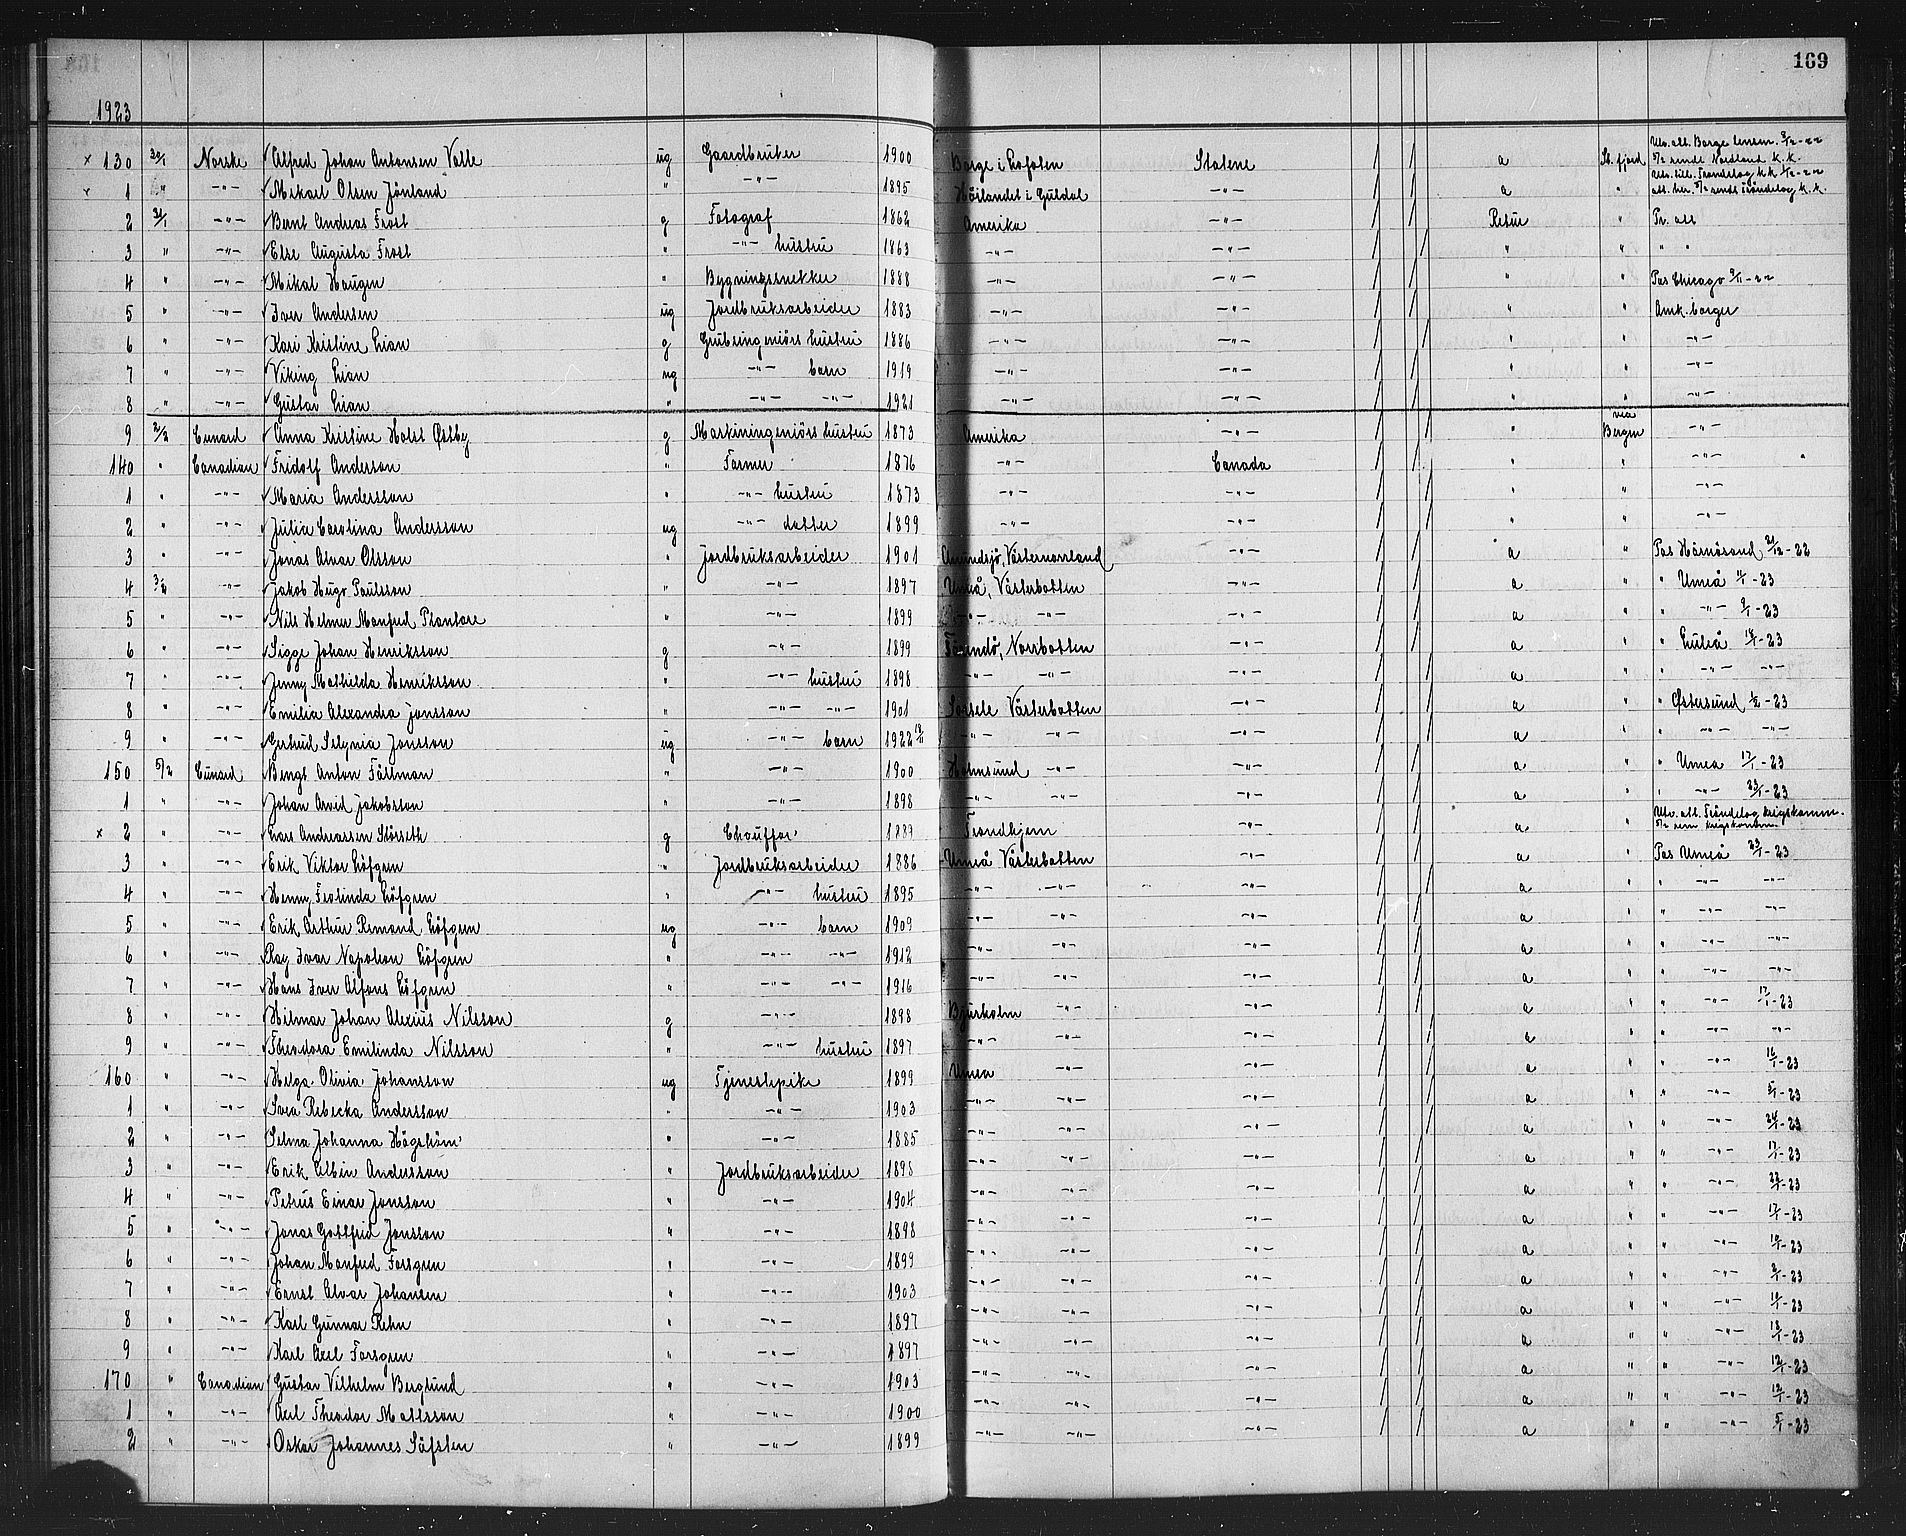 169
1923
× 130 30/1 Norske Alfred Johan Antonsen Valle ug Gaardbruker 1900 Borge i Lofoten Statene a St. fjord Utv. att. Borge lensm. 8/12-22 5/12 sendt Nordland k.k.
× 1 " -"- Mikael Olsen Jönland " -"- 1895 Höilandet i Guldal -"- a " Utv. till. Tröndelag k.k. att. her. 5/12 sendt Tröndelag k.k.
2 31/1 -"- Bernt Andreas Frost g Fotograf 1862 Amerika -"- Retur " Pr. att
3 " -"- Else Augusta Frost " -"- hustru 1863 -"- -"- " " " "
4 " -"- Mikal Haugen " Bygningssnekker 1888 -"- -"- " " Pas Chicago 9/11-22
5 " -"- Iver Andersen ug Jordbruksarbeider 1883 -"- -"- " " Amk. borger
6 " -"- Kari Kristine Lian g Grubeingeniörs hustru 1886 -"- -"- " " -"-
7 " -"- Viking Lian ug -"- barn 1919 -"- -"- " " -"-
8 " -"- Gustav Lian " -"- -"- 1921 -"- -"- " " -"-
9 2/2 Cunard Anna Kristine Holst Østby g Maskiningeniörs hustru 1873 Amerika -"- " via Bergen -"-
140 " Canadian Fridolf Anderson " Farmer 1876 -"- Canada " " -"-
1 " -"- Maria Andersson " -"- hustru 1873 -"- -"- " " -"-
2 " -"- Julia Carolina Andersson ug -"- datter 1899 -"- -"- " " -"-
3 " -"- Jonas Alvar Olsson " Jordbruksarbeider 1901 Amundsjö, Västernorrland -"- a " Pas Härnösand 21/12-22
4 3/2 -"- Jakob Hugo Paulsson " -"- 1897 Umeå, Västerbotten -"- a " " Umeå 11/1-23
5 " -"- Nils Helmer Manfred Plantare " -"- 1899 -"- -"- -"- a " " -"- 9/1-23
6 " -"- Sigge Johan Henriksson g -"- 1899 Tärendö, Norrbotten -"- a " " Luleå 18/1-23
7 " -"- Jenny Mathilda Henriksson " -"- hustru 1898 -"- -"- -"- a " " -"- -"-
8 " -"- Emilia Alexandra Jonsson " -"- -"- 1901 Sorsele Västerbotten -"- a " " Østersund 1/2-23
9 " -"- Gertrud Selynia Jonsson ug -"- barn 1922 12/11 -"- -"- -"- a " " -"- -"-
150 5/2 Cunard Bengt Anton Fällman " -"- 1900 Holmsund -"- -"- a " " Umea 17/1-23
1 " -"- Johan Arvid Jakobsson " -"- 1898 -"- -"- -"- a " " -"- 23/1-23
× 2 " -"- Lars Andreassen Störseth g Chauffør 1889 Trondhjem -"- a " Utv. att. Tröndelag krigskomm. 5/2 sem krigskomm
3 " -"- Erik Viktor Löfgren " Jordbruksarbeider 1886 Umeå Västerbotten -"- a " Pas Umeå 23/1-23
4 " -"- Henny Frolinda Löfgren " -"- hustru 1895 -"- -"- -"- a " " -"- -"-
5 " -"- Erik Arthur Remond Löfgren ug -"- barn 1909 -"- -"- -"- a " " -"- -"-
6 " -"- Ray Ivar Napoleon Löfgren " -"- -"- 1912 -"- -"- -"- a " " -"- -"-
7 " -"- Hans Iver Alfons Löfgren " -"- -"- 1916 -"- -"- -"- a " " -"- -"-
8 " -"- Hilmar Johan Alexius Nilsson g -"- 1898 Bjurholm -"- -"- a " " -"- 17/1-23
9 " -"- Theodora Emilinda Nilsson " -"- hustru 1897 -"- -"- -"- a " " -"- -"-
160 " -"- Helga Olivia Johansson ug Tjenestepike 1899 Umea -"- -"- a " " -"- 16/1-23
1 " -"- Svea Rebecka Andersson " -"- 1903 -"- -"- -"- a " " -"- 5/1-23
2 " -"- Selma Johanna Hägström " -"- 1885 -"- -"- -"- a " " -"- 24/1-23
3 " -"- Erik Albin Andersson " Jordbruksarbeider 1898 -"- -"- -"- a " " -"- 17/1-23
4 " -"- Petrus Einar Jonsson " -"- 1904 -"- -"- -"- a " " -"- 22/1-23
5 " -"- Jonas Gottfrid Jonsson " -"- 1898 -"- -"- -"- a " " -"- 17/1-23
6 " -"- Johan Manfred Forsgren " -"- 1899 -"- -"- -"- a " " -"- 10/1-23
7 " -"- Ernst Alvar Johansen " -"- 1903 -"- -"- -"- a " " -"- 9/1-23
8 " -"- Karl Gunnar Rehn " -"- 1897 -"- -"- -"- a " " -"- 16/1-23
9 " -"- Karl Axel Forsgren " -"- 1897 -"- -"- -"- a " " -"- 18/1-23
170 " Canadian Gustav Vilhelm Berglund " -"- 1903 -"- -"- -"- a " " -"- 12/1-23
1 " -"- Axel Theodor Mattsson " -"- 1900 -"- -"- -"- a " " -"- 12/1-23
2 " -"- Oskar Johannes Säfsten " -"- 1899 -"- -"- -"- a " " -"- 5/1-23